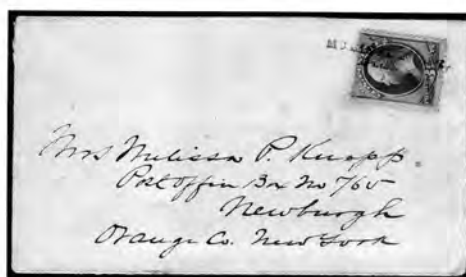 Mrs Melissa P. Knapp.
Post Office Box No 765
Newburgh
Orange Co. New York